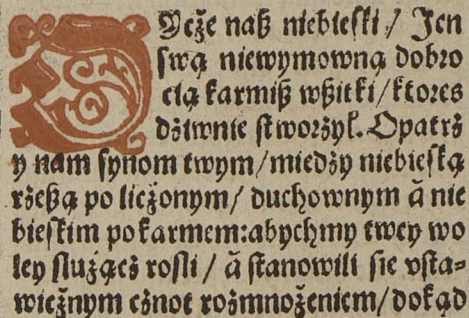 OYcże naß niebieſki / Jen
ſwą niewymowną dobro
cią karmiß wßitki / ktores
dziwnie ſtworzył. Opatrz
y nam ſynom twym / miedzy niebieſką
rzeßą policżonym / duchownym á nie
bieſkim pokarmem: abychmy twey wo
ley ſlużącz roſli / á ſtanowili ſie vſta⸗
wicżnym cznot rozmnożeniem / dokąd